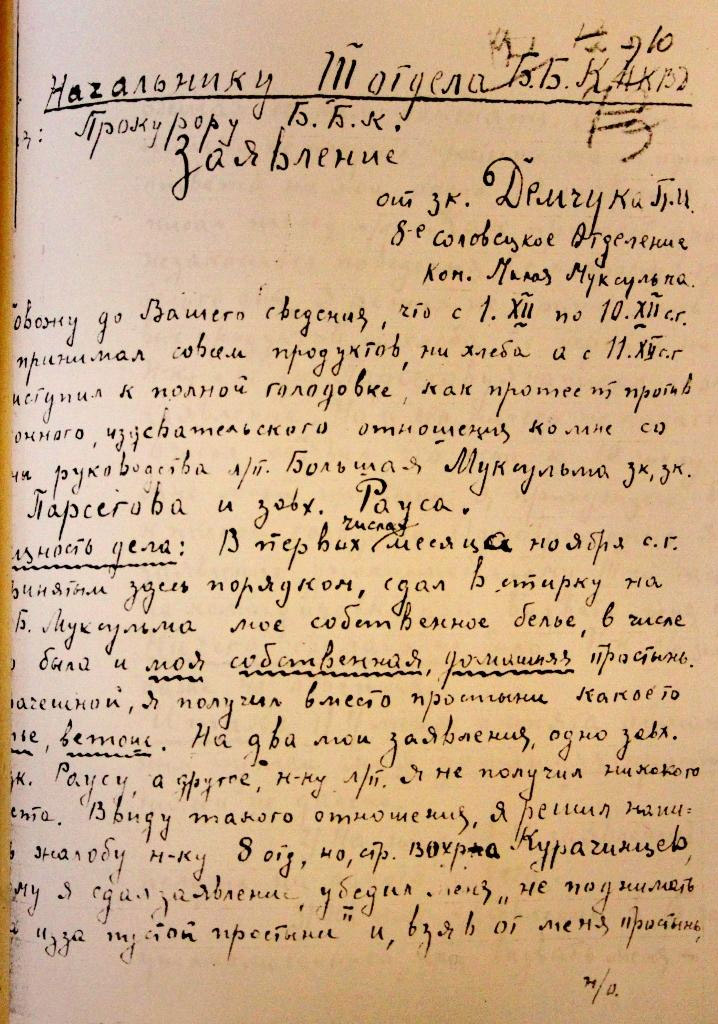 Начальнику III отдела Б.Б.К. НКВД
Прокурору Б.Б.К.
Заявление
от зк. Демчука П.И.
8-е соловецкое Отделение
Ком. Малая Муксульма.
овожу до Вашего сведения, что с 1.XII по 10.XII с.г.
принимал совсем продуктов, ни хлеба а с 11.XII с.г
иступил к полной голодовке, как протест против
онного, издевательского отношения ко мне со
ны руководства л/п. Большая Муксульма зк,зк.
Парсегова и завх. Рауса.
щность дела: В первых числах месяца ноября с.г.
ринятым здесь порядком, сдал в стирку на
Б. Муксульма мое собственное белье, в числе
о была и моя собственная, домашняя простынь.
рачешной, я получил вместо простыни какое то
ье, ветош. На два мои заявления, одно завх.
зк. Раусу, а другое, н-ку л/п. я не получил никокого
ета. Ввиду такого отношения, я решил напи-
ь жалобу н-ку 8 отд, но, стр. ВОХР-а Курачинцев,
му я сдал заявление, убедил меня „не поднимать
изза пустой простыни" и, взяв от меня простынь,
н/о.